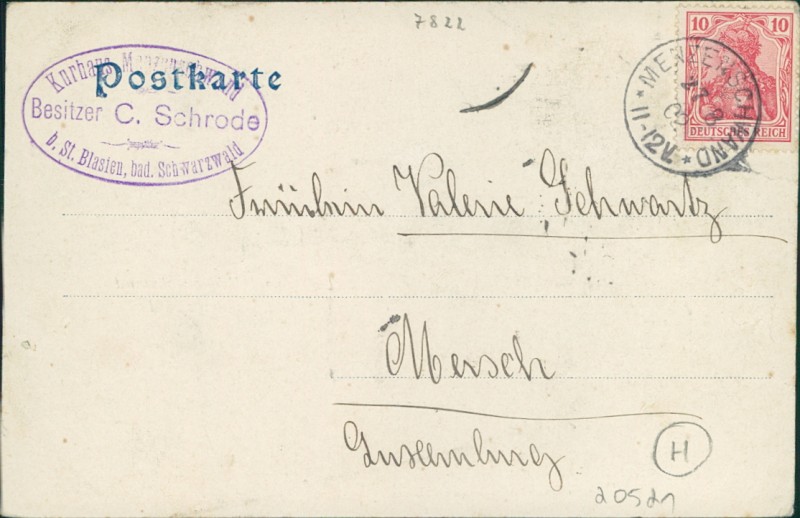 7822
Postkarte
Kurhaus Menzenschwand
Besitzer C. Schrode
b. St. Blasien, bad. Schwarzwald
10 10
DEUTSCHES REICH
* MENZENSCHWAND *
11-12V.
Fräulein Valerie Schwartz
Mersch
Luxemburg
H
20521